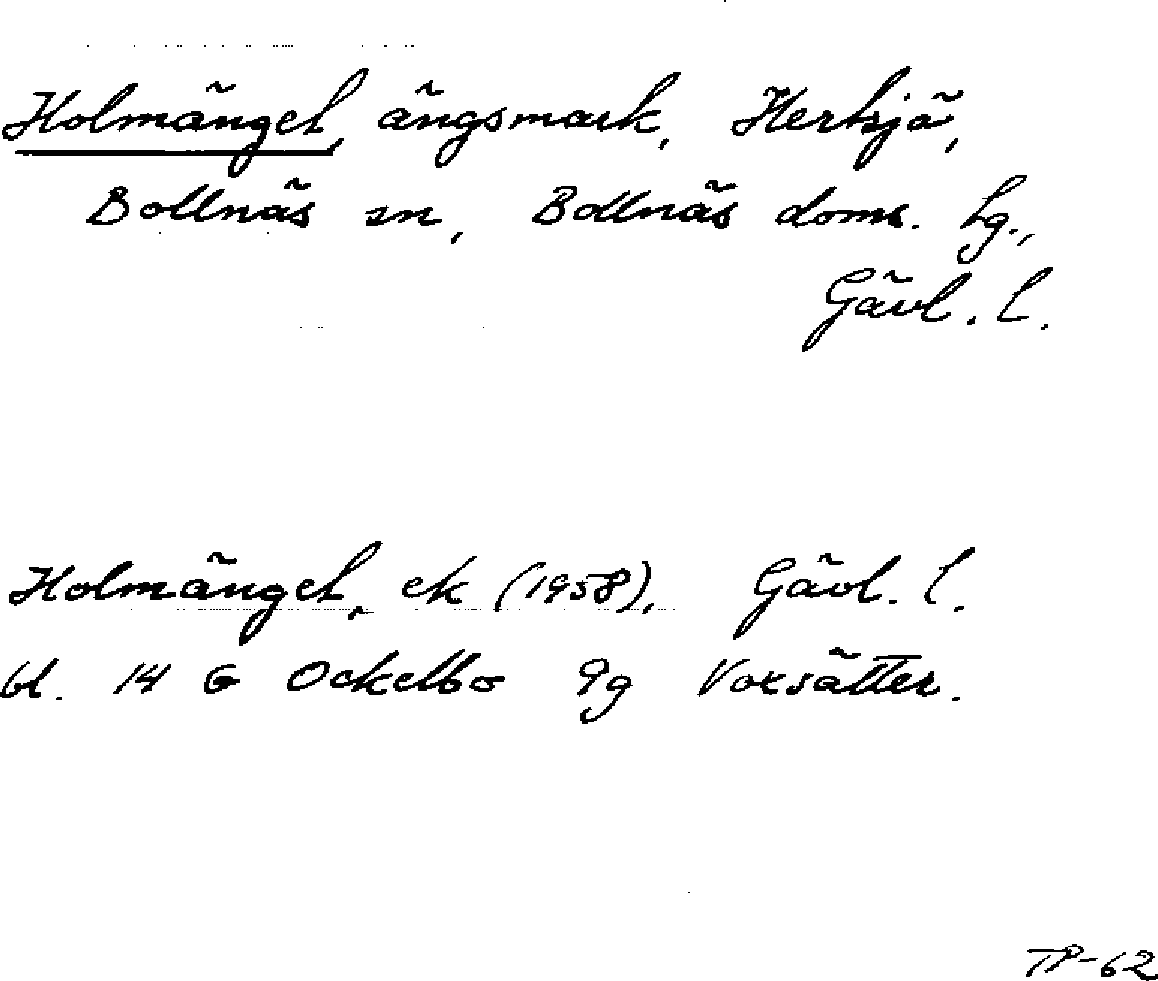 Holmänget, ängsmark, Hertsjö,
Bollnäs sn, Bollnäs doms. hg.,
Gävl. l.
Holmänget, ek (1958), Gävl. l.
bl. 14 G Ockelbo 9g Voxsätter.
TP-62